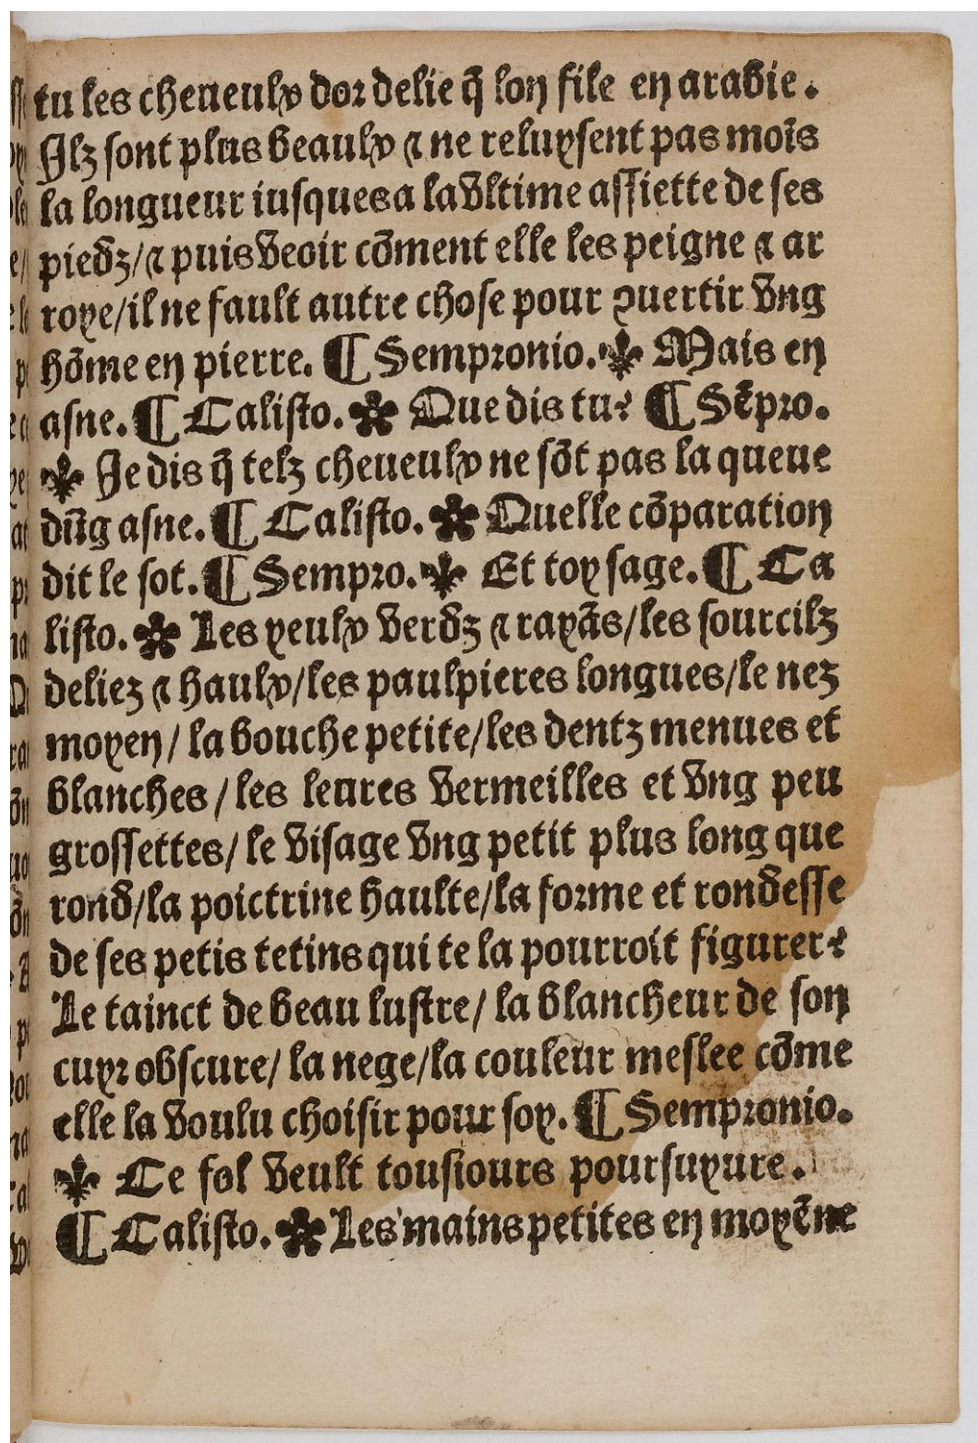 tu les cheueulx dor delie q̃ lon file en arabie.
Ilz sont plus beaulx ⁊ ne reluysent pas moĩs
la longueur iusques a la vltime assiette de ses
piedz/⁊ puis veoir cõment elle les peigne ⁊ ar
roye/il ne fault autre chose pour ꝯuertir vng
hõme en pierre. ¶ Sempronio. ⚜ Mais en
asne. ¶ Calisto. ✽ Que dis tu? ¶ Sẽpro.
⚜ Je dis q̃ telz cheueulx ne sõt pas la queue
dũg asne. ¶ Calisto. ✽ Quelle cõparation
dit le sot. ¶ Sempro. ⚜ Et toy sage. ¶ Ca
listo. ✽ Les yeulx verdz ⁊ rayãs/les sourcilz
deliez ⁊ haulx/les paulpieres longues/le nez
moyen/ la bouche petite/les dentz menues et
blanches/ les leures vermeilles et vng peu
grossettes/ le visage vng petit plus long que
rond/la poictrine haulte/la forme et rondesse
de ses petis tetins qui te la pourroit figurer?
Le tainct de beau lustre/ la blancheur de son
cuyr obscure/ la nege/la couleur meslee cõme
elle la voulu choisir pour soy. ¶ Sempronio.
⚜ Ce fol veult tousiours poursuyure.
¶ Calisto. ✽ Les mains petites en moyẽne